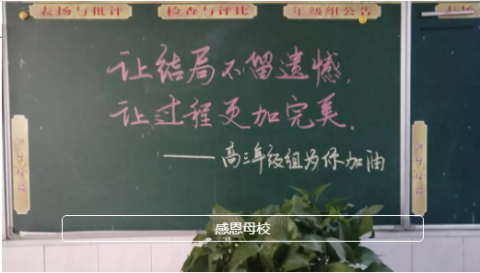 表扬与批评 检查与评比 年级组公告 表扬
让结局不留遗憾,
让过程更加完美.
——高三年级组为你加油
感恩母校